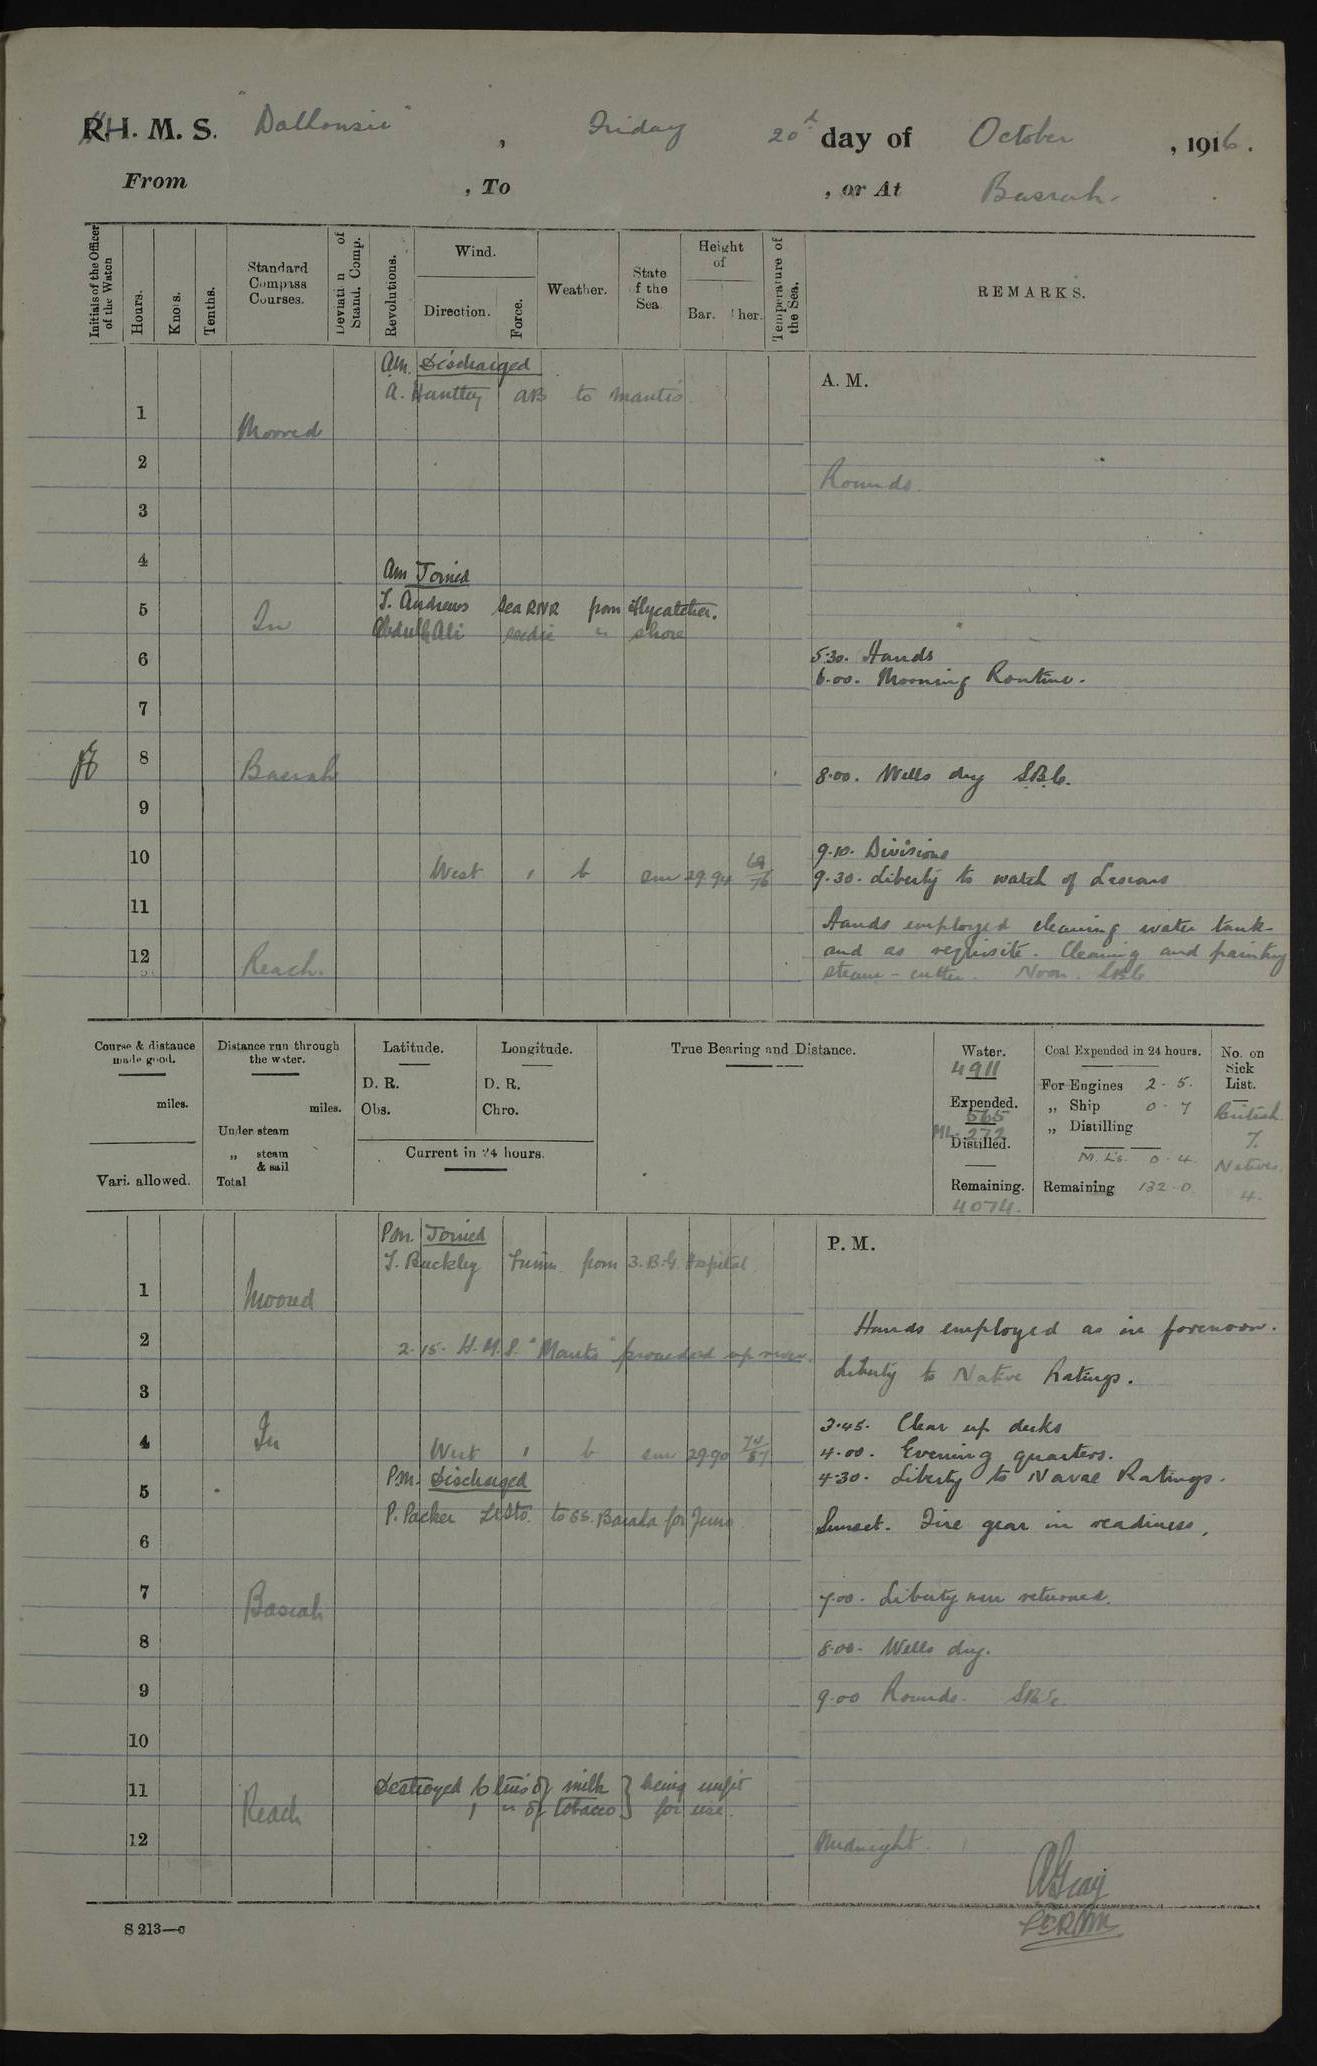 R.H. M. S. "Dalhousie", Friday 20th day of October, 1916.
From , To , or At Basrah.
Initials of the Officer of the Watch
Hours.
Knots.
Tenths.
Standard Compass Courses.
Deviation of Stand. Comp.
Revolutions.
Wind.
Direction.
Force.
Weather.
State of the Sea.
Height of
Bar. Ther.
Temperature of the Sea.
REMARKS.
Am. Discharged
A. M.
A. Huntley AB to Mantis
1
Moored
2
Rounds.
3
4
Am Joined
J. Andrews Sea RNR from Flycatcher.
5
In
Abdul Ali seedie " shore
5.30. Hands
6
6.00. Morning Routine.
7
8
Basrah
8.00. Wells dry S.B.C.
9
9.10. Divisions
10
West 1 b sm 29.94 69/76
9.30. Liberty to watch of Lascars
11
Hands employed cleaning water tank
12
and as requisite. Cleaning and painting
Reach.
steam-cutter. Noon. SBC
Course & distance made good.
miles.
Vari. allowed.
Distance run through the water.
miles.
Under steam
" steam & sail
Total
Latitude.
D. R.
Obs.
Longitude.
D. R.
Chro.
Current in 24 hours.
True Bearing and Distance.
Water.
4911
Expended.
565
ML. 272
Distilled.
Remaining.
4074.
Coal Expended in 24 hours.
For Engines 2 - 5.
" Ship 0 - 7
" Distilling
M. L's. 0 - 4.
Remaining 132 - 0
No. on Sick List.
British
7.
Natives
4.
Pm. Joined
P. M.
J. Buckley from 3. B.G Hospital
1
Moored
Hands employed as in forenoon.
2
2.15. H.M.S. "Mantis" proceeded up river.
Liberty to Native Ratings.
3
3.45. Clear up decks
4
In
West 1 b sm 29.90 74/87
4.00. Evening quarters.
Pm. Discharged
4.30. Liberty to Naval Ratings.
5
P. Packer LtSto. to SS. Barala for Juno
Sunset. Fire gear in readiness.
6
7
Basrah
7.00. Liberty men returned.
8
8.00. Wells dry.
9
9.00 Rounds. SBC.
10
11
Destroyed 6 tins of milk } being unfit
1 " of Tobacco } for use.
Reach
12
Midnight.
AGray
S 213—c